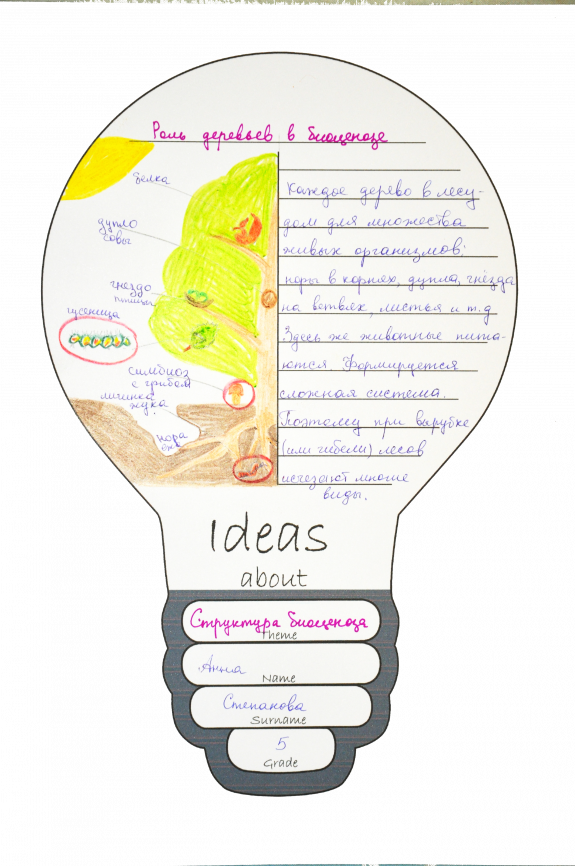 Роль деревьев в биоценозе
белка
дупло
совы
гнездо
птицы
гусеница
симбиоз
с грибом
личинка
жука
нора
ежа
Каждое дерево в лесу-
дом для множества
живых организмов:
норы в корнях, дупла, гнёзда
на ветвях, листья и т.д
Здесь же животные пита-
ются. Формируется
сложная система.
Поэтому при вырубке
(или гибели) лесов
исчезают многие
виды.
Ideas
about
Структура биоценоза
Theme
Анна
Name
Степанова
Surname
5
Grade